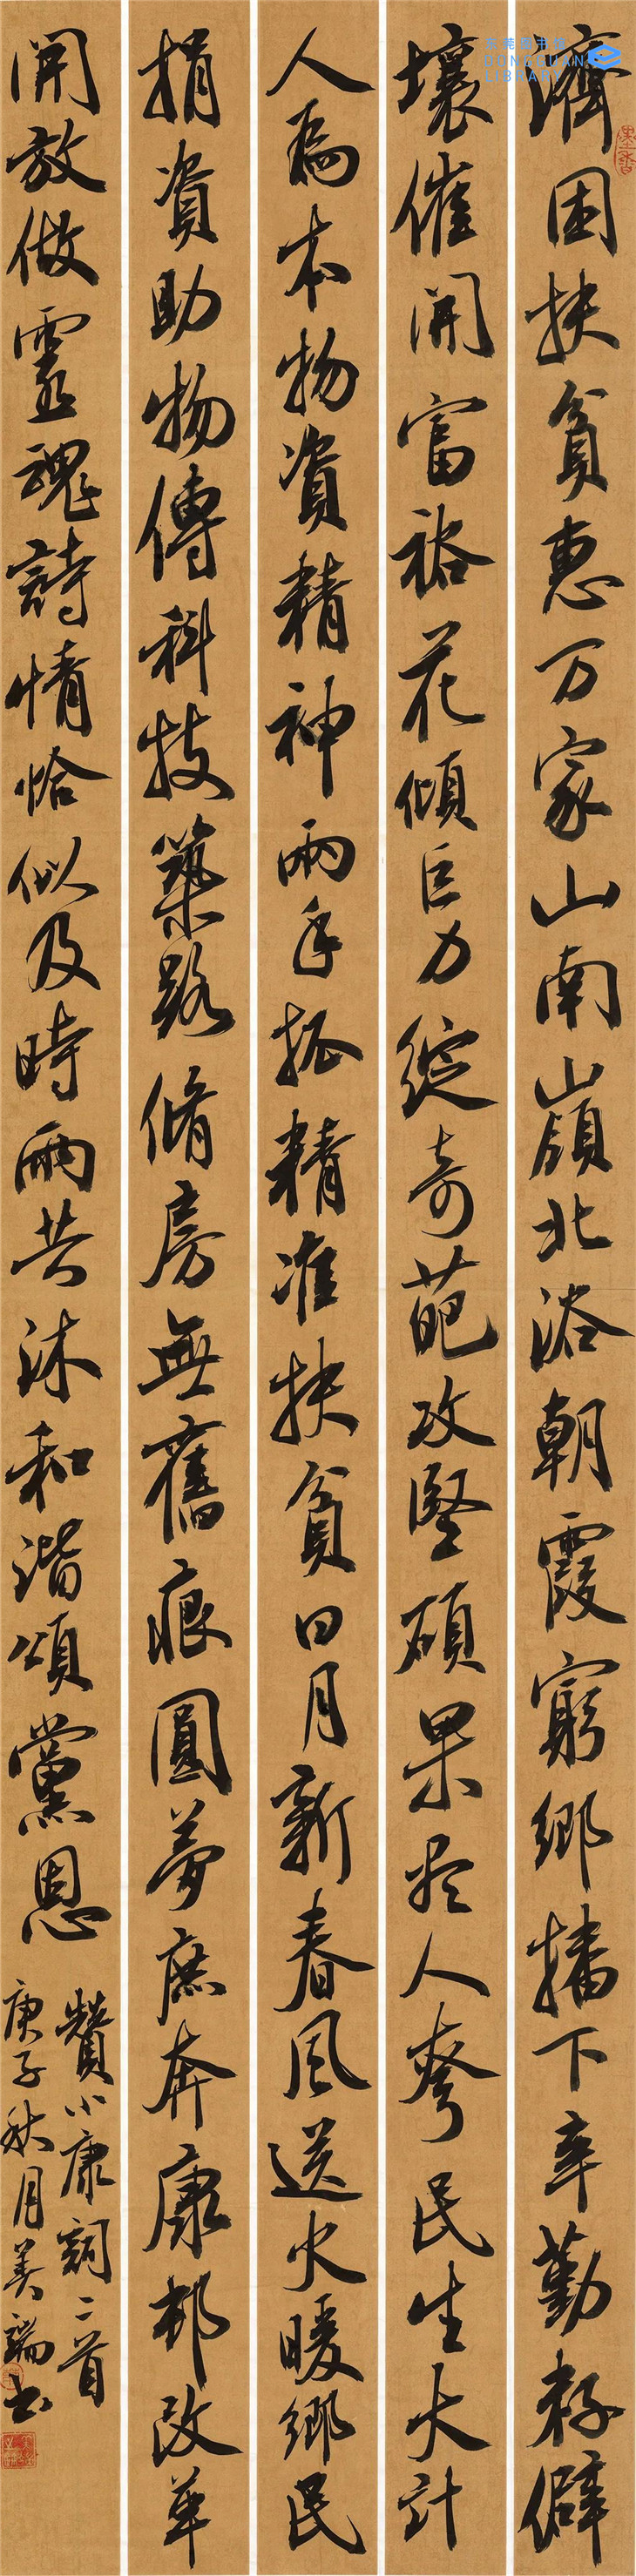 濟困扶貧惠万家山南嶺北浴朝霞窮鄉播下辛勤籽僻
壤催開富裕花傾巨力綻奇葩攻堅碩果令人夸民生大計
人為本物資精神兩手抓精准扶貧日月新春風送火暖鄉民
捐資助物傳科技築路脩房無舊痕圓夢庶奔康邨改革
開放做靈魂詩情恰似及時雨共沐和諧頌黨恩
贊小康詞二首
庚子秋月美端书
墨香
东莞图书馆
DONGGUAN
LIBRARY